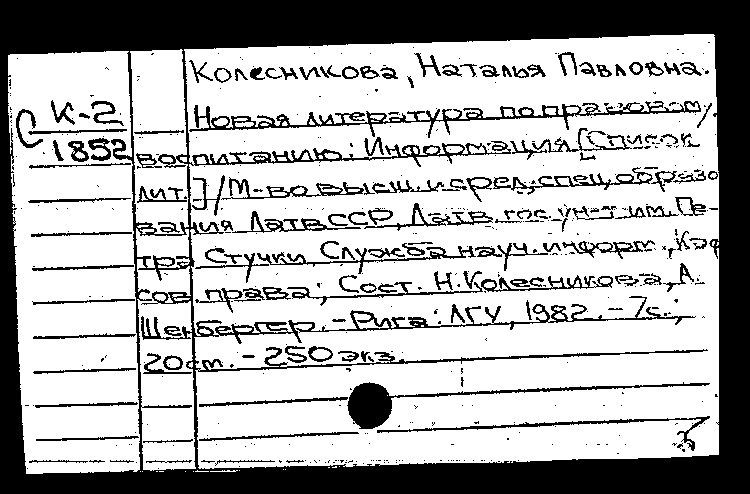 Колесникова, Наталья Павловна.
С К-2
1852
Новая литература по правовому
воспитанию: Информация [Список
лит.] / М-во высш. и сред. спец. образо
вания ЛатвССР, Латв. гос. ун-т им. Пе-
тра Стучки, Служба науч. информ., Каф
сов. права; Сост. Н. Колесникова, А.
Шенбергер. - Рига: ЛГУ, 1982. - 7с.;
20см. - 250 экз.